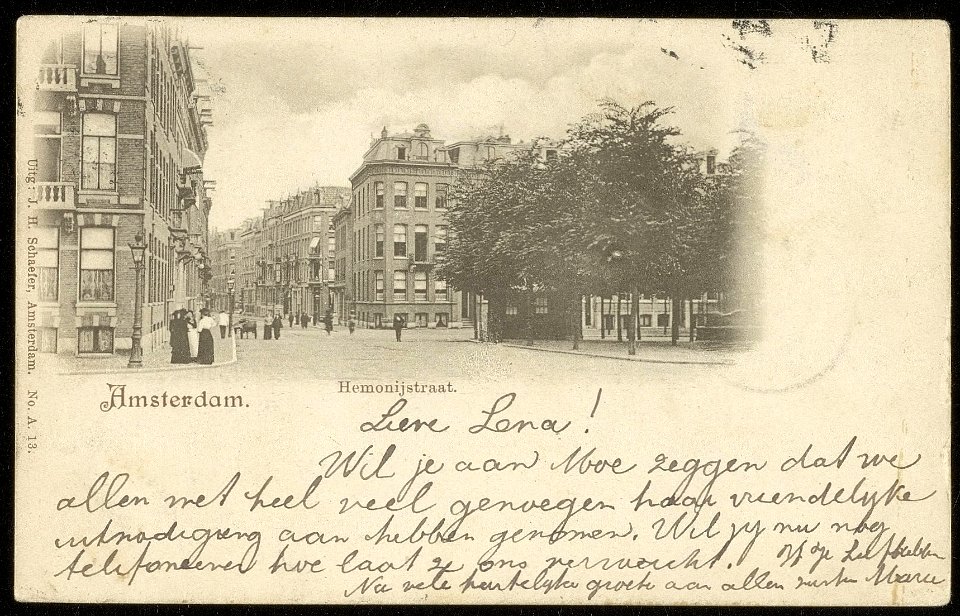 Uitg: J. H. Schaefer, Amsterdam. No. A. 13.
Amsterdam.
Hemonijstraat.
Lieve Lena!
Wil je aan Moe zeggen dat we
allen met heel veel genoegen haar vriendelyke
uitnodiging aan hebben genomen. Wil jy nu nog
telefoneeren hoe laat ze ons verwacht.
Na vele hartelyke groete aan allen zuster Marie